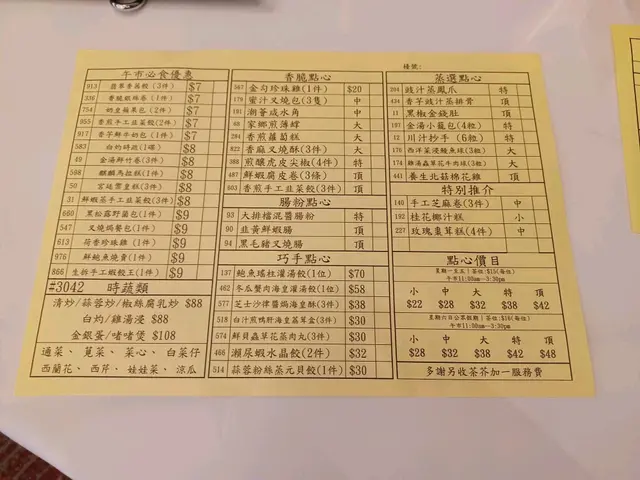 檯號:
午市必食優惠
313 (3件) $7
336 香脆銀絲卷 (1件) $7
754 奶皇蘋果包 (2件) $7
955 香煎手工韮菜餃 (2件) $7
917 香芋鮮牛奶包 (1件) $7
583 白灼時蔬 $8
49 金湯鮮竹卷 (3件) $8
598 麒麟馬拉糕 (1件) $8
50 宮廷 (3件) $8
31 鮮蝦蒸手工韮菜餃 (3件) $8
660 黑松露野菌包 (1件) $9
547 叉燒焗餐包 (1件) $9
613 荷香珍珠雞 (1件) $9
976 鮮鮑魚燒賣 (1件) $9
866 生拆手工蝦餃王 (1件) $9
#3042 時蔬類
清炒/蒜蓉炒/椒絲腐乳炒 $88
白灼/雞湯浸 $88
金銀蛋/啫啫煲 $108
通菜、莧菜、菜心、白菜仔
西蘭花、西芹、娃娃菜、涼瓜
香脆點心
567 金勾珍珠雞(1件) $20
178 蜜汁叉燒包(3隻) 中
191 潮薈咸水角 中
48 家鄉煎薄罉 大
294 香煎蘿蔔糕 大
822 香麻叉燒酥(3件) 大
388 煎釀虎皮尖椒(4件) 特
487 鮮蝦腐皮卷(3條) 頂
803 香煎手工韮菜餃(3件) 頂
腸粉點心
93 大排檔混醬腸粉 特
90 韭黃鮮蝦腸 頂
94 黑毛豬叉燒腸 頂
巧手點心
137 鮑魚瑤柱灌湯餃(1位) $70
462 冬瓜蟹肉海皇灌湯餃(1位) $58
577 芝士沙律醬焗海皇酥(3件) $38
518 白汁煎鴨肝海皇蒸茸盒(3件) $30
574 鮮貝蟲草花蒸肉丸(3件) $30
466 瀨尿蝦水晶餃(2件) $32
514 蒜蓉粉絲蒸元貝餃(1件) $30
蒸選點心
284 豉汁蒸鳳爪 特
434 香芋豉汁蒸排骨 頂
11 黑椒金錢肚 頂
197 金湯小籠包(4粒) 特
12 川汁抄手 (6粒) 特
176 西洋菜浸鯪魚球(3粒) 大
174 雞湯蟲草花牛肉球(3粒) 大
441 養生北菇棉花雞 頂
特別推介
140 手工芝麻卷(3件) 中
192 桂花椰汁糕 小
227 玫瑰棗茸糕(4件) 中
點心價目
星期一至五（茶位:$15(每位)
午市11:00am-3:30pm
小 中 大 特 頂
$22 $28 $32 $38 $42
星期六日公眾假期（茶位:$18(每位)
午市11:00am-3:30pm
小 中 大 特 頂
$28 $32 $38 $42 $48
多謝另收茶芥加一服務費